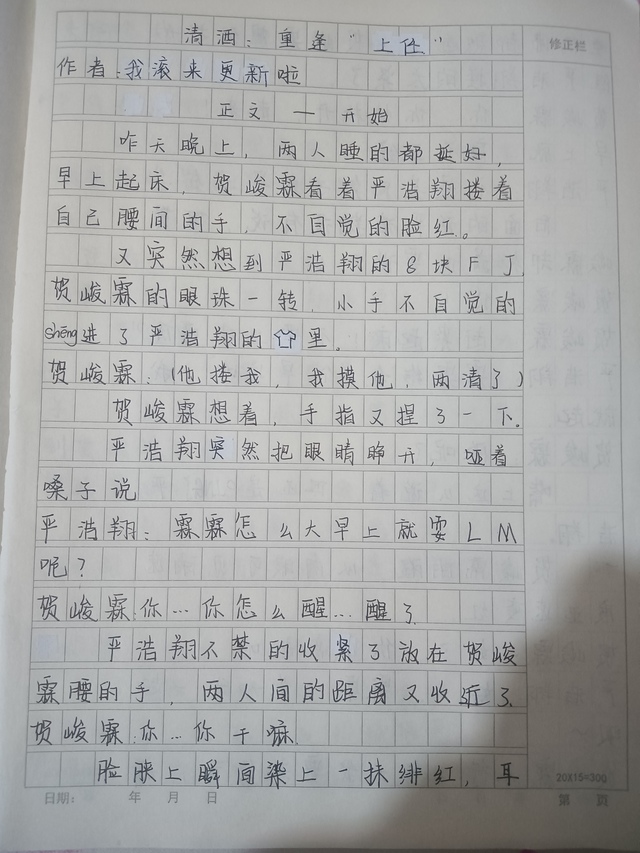 清洒：重逢“上任”
修正栏
作者：我滚来更新啦
正文一开始
昨天晚上，两人睡的都挺好，
早上起床，贺峻霖看着严浩翔搂着
自己腰间的手，不自觉的脸红。
又突然想到严浩翔的8块FJ，
贺峻霖的眼珠一转，小手不自觉的
shēng进了严浩翔的里。
贺峻霖：(他搂我，我摸他，两清了)
贺峻霖想着，手指又捏了一下。
严浩翔突然把眼睛睁开，哑着
嗓子说
严浩翔：霖霖怎么大早上就耍LM
呢？
贺峻霖：你…你怎么醒…醒了
严浩翔不禁的收紧了放在贺峻
霖腰的手，两人间的距离又收近了
贺峻霖：你…你干嘛
脸肤上瞬间染上一抹绯红，耳
20X15=300
日期： 年 月 日 第 页